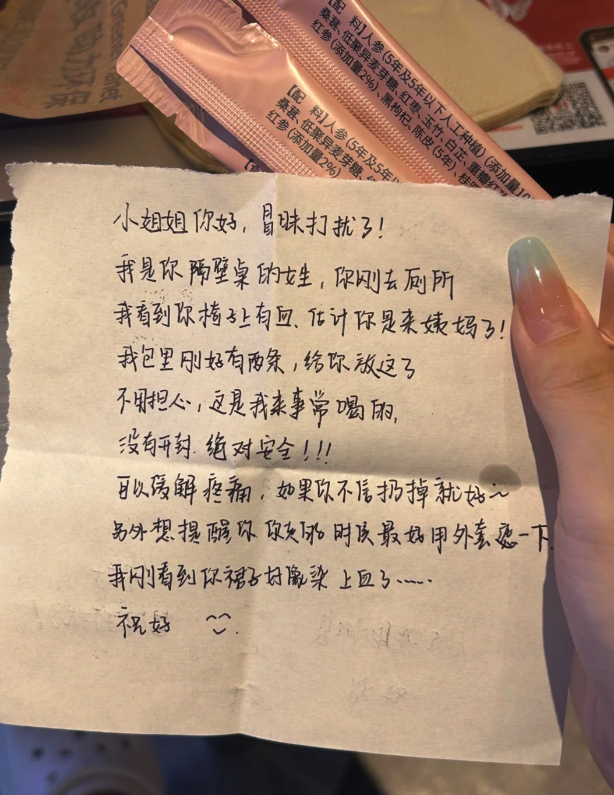 【配 料】人参(5年及5年以下人工种植)(添加量10
桑葚、低聚异麦芽糖、红枣、玉竹、白芷、重瓣红玫
红参(添加量2%)、黑枸杞、陈皮(5年)、桂圆
【配 料】人参(5年及5年
桑葚、低聚异麦芽糖、红
红参(添加量2%)、
小姐姐你好，冒昧打扰了！
我是你隔壁桌的女生，你刚去厕所
我看到你椅子上有血、估计你是来姨妈了！
我包里刚好有两条，给你放这了
不用担心，这是我来事常喝的，
没有开封.绝对安全！！！
可以缓解疼痛，如果你不信扔掉就好～
另外想提醒你 你走的时候最好用外套遮一下.
我刚看到你裙子好像染上血了……
祝好